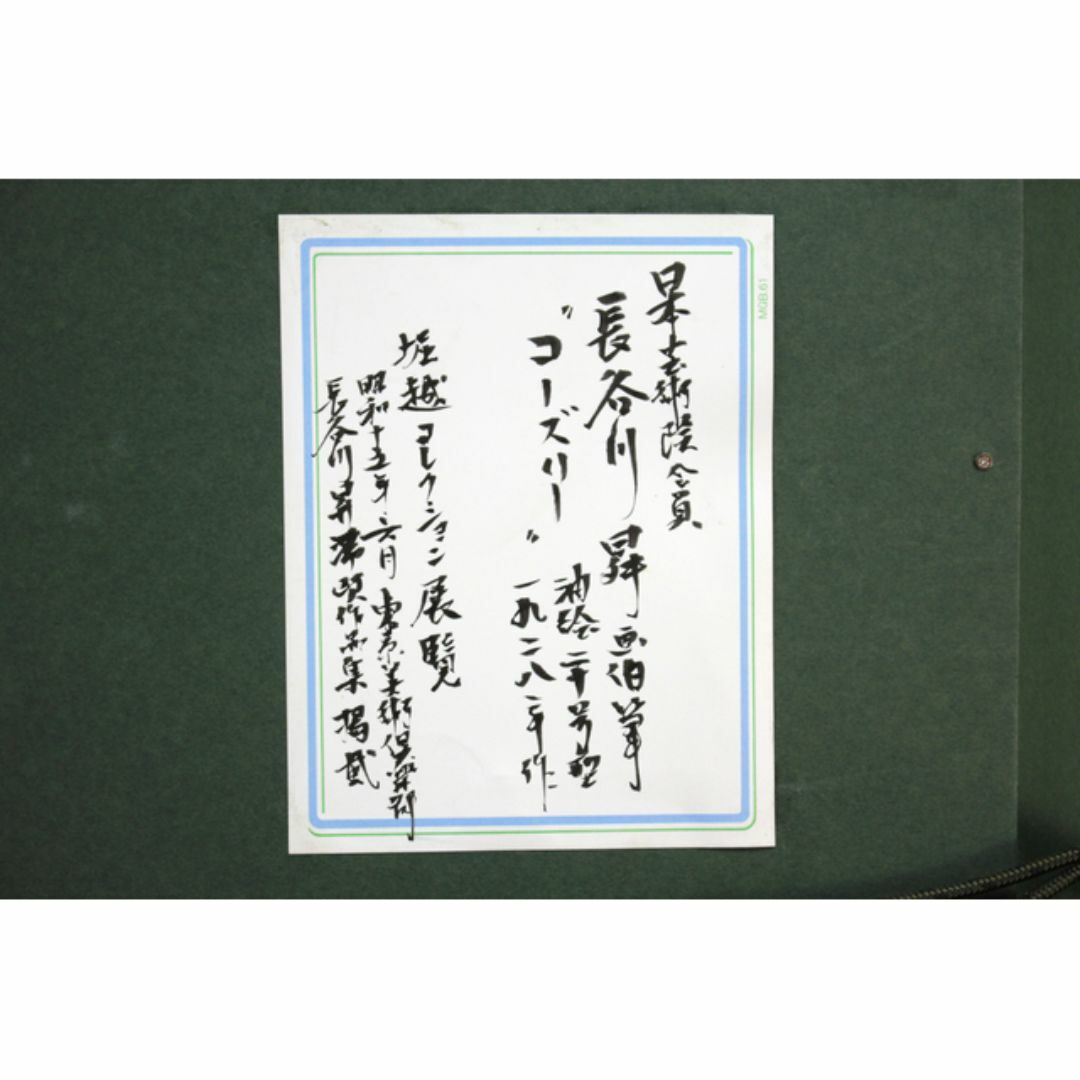 日本芸術院会員
長谷川昇画伯筆
油絵二十号型
"コーズリー" 一九二八年作
堀越コレクション展覧
昭和十五年六月 東京美術倶楽部
長谷川昇滞欧作品集 掲載
MQB.61